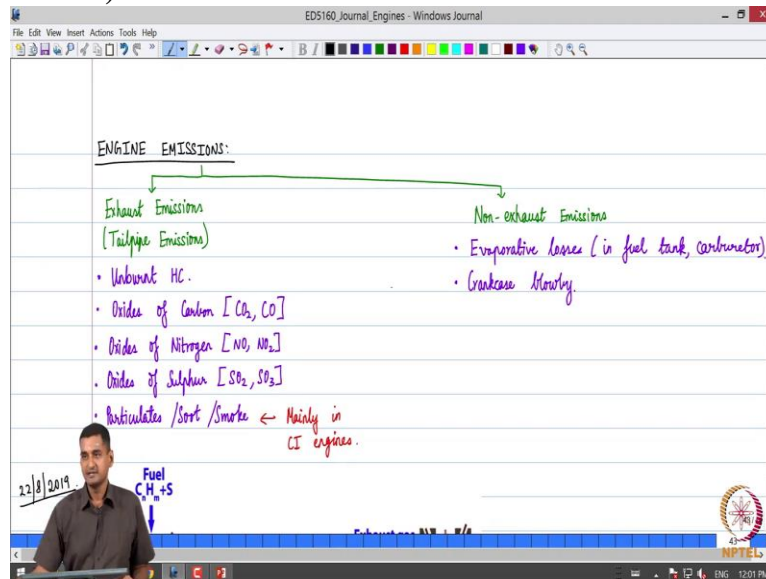 ED5160_Journal_Engines - Windows Journal
File Edit View Insert Actions Tools Help
ENGINE EMISSIONS:
Exhaust Emissions
(Tailpipe Emissions)
• Unburnt HC.
• Oxides of Carbon [CO2, CO]
• Oxides of Nitrogen [NO, NO2]
• Oxides of Sulphur [SO2, SO3]
• Particulates /Soot /Smoke ← Mainly in
CI engines.
Non-exhaust Emissions
• Evaporative losses (in fuel tank, carburetor)
• Crankcase blowby.
22/8/2019
Fuel
CnHm+S
Exhaust gas
43
NPTEL
ENG 12:01 PM